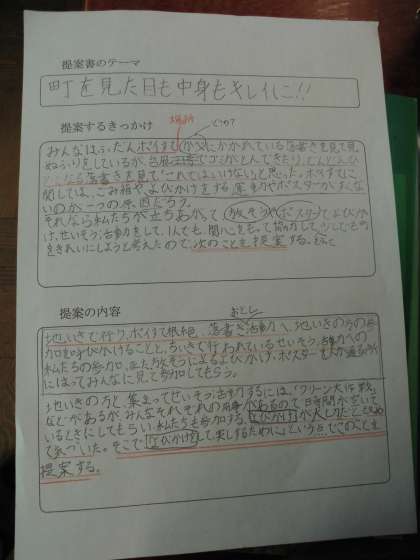 提案書のテーマ
町を見た目も中身もキレイに!!
提案するきっかけ
みんなはふだんポイすてやかべにかかれている落書きを見て見
ぬふりをしているが、
落書きを見て「これではいけない」と思った。ポイすてに
関しては、ごみ箱や、よびかけをする運動やポスターが少ない
のが一つの原因だろう。
それなら私たちが立ちあがって
け、せいそう活動をして、1人でも、関心をもって協力して、少しでも町
をきれいにしようと考えたので、次のことを提案する。
提案の内容
おとし
地いきで行う、ポイすて根絶、落書き活動へ、地いきの方の参
加を呼びかけることと、ちいきで行われているせいそう活動への
私たちの参加。また、放そうによるよびかけ、ポスターを人が通る所
にはってみんなに見て参加してもらう。
地いきの方と集まってせいそう活動するには、「クリーン大作戦」
などがあるが、みんなそれぞれの用事があるので時間が空いて
いるときにしてもらい、私たちも参加する。よびかけが大切だと
て気づいた。そこで「よびかけをして楽しするために」という
提案する。